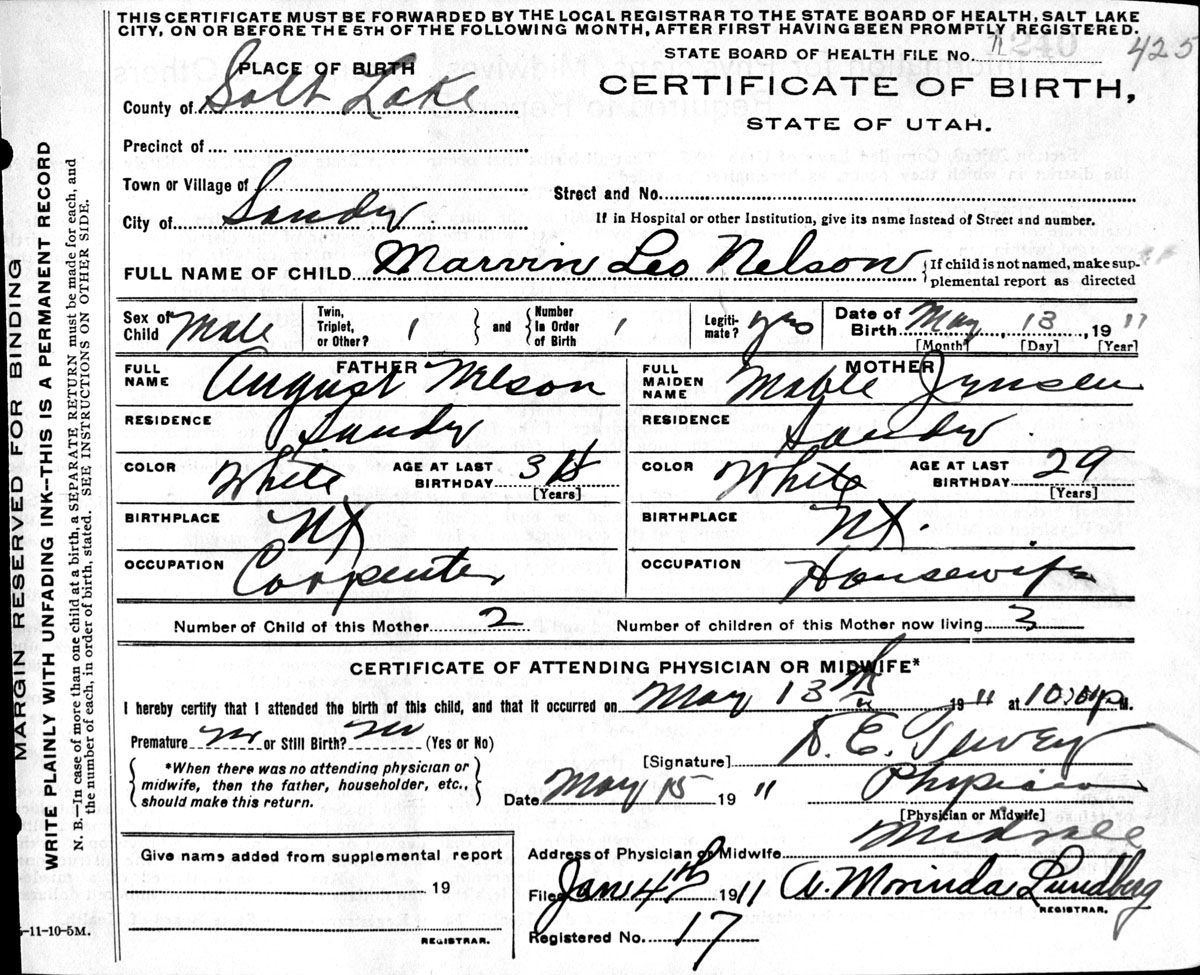 THIS CERTIFICATE MUST BE FORWARDED BY THE LOCAL REGISTRAR TO THE STATE BOARD OF HEALTH, SALT LAKE
CITY, ON OR BEFORE THE 5TH OF THE FOLLOWING MONTH, AFTER FIRST HAVING BEEN PROMPTLY REGISTERED.
STATE BOARD OF HEALTH FILE No. 240 425
PLACE OF BIRTH
CERTIFICATE OF BIRTH,
County of Salt Lake
STATE OF UTAH.
Precinct of
Town or Village of
Street and No.
City of Sandy
If in Hospital or other Institution, give its name instead of Street and number.
FULL NAME OF CHILD Marvin Leo Nelson { If child is not named, make sup-
plemental report as directed
Sex of Child Male
Twin, Triplet, or Other? 1 } and { Number In Order of Birth 1
Legiti-mate? yes
Date of Birth May 13, 1911
[Month] [Day] [Year]
FATHER
FULL NAME August Nelson
MOTHER
FULL MAIDEN NAME Mable Jynsen
RESIDENCE Sandy
RESIDENCE Sandy
COLOR White AGE AT LAST BIRTHDAY 3
[Years]
COLOR White AGE AT LAST BIRTHDAY 29
[Years]
BIRTHPLACE
BIRTHPLACE
OCCUPATION Carpenter
OCCUPATION Housewife
Number of Child of this Mother 2 Number of children of this Mother now living 3
CERTIFICATE OF ATTENDING PHYSICIAN OR MIDWIFE*
I hereby certify that I attended the birth of this child, and that it occurred on May 13th 19 11 at P M.
Premature no or Still Birth? no (Yes or No)
[Signature]
*When there was no attending physician or
midwife, then the father, householder, etc.,
should make this return.
Date May 15 19 11 Physician
[Physician or Midwife]
Address of Physician or Midwife Midvale
Give name added from supplemental report
19
REGISTRAR.
Filed June 4th 1911 A. Morinda Lundberg
REGISTRAR.
Registered No. 17
-11-10-5M.
MARGIN RESERVED FOR BINDING
WRITE PLAINLY WITH UNFADING INK—THIS IS A PERMANENT RECORD
N. B.—In case of more than one child at a birth, a SEPARATE RETURN must be made for each, and
the number of each, in order of birth, stated. SEE INSTRUCTIONS ON OTHER SIDE.